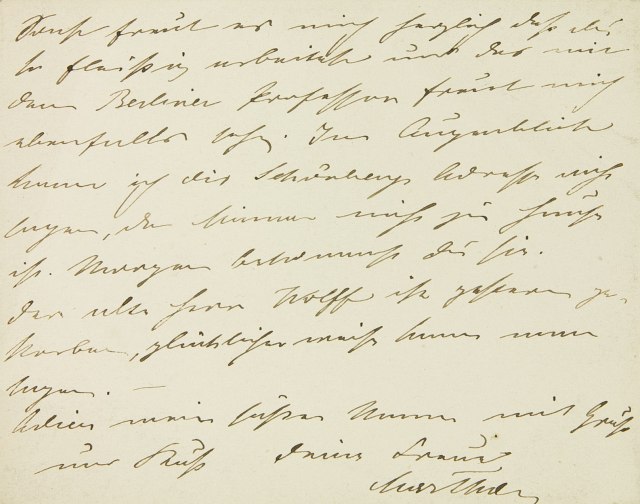 Sonst freut es mich herzlich daß du
so fleißig arbeitest und das mit
dem Berliner Professor freut mich
ebenfalls sehr. Im Augenblick
kann ich dir Schönbergs Adresse nicht
sagen, da nicht zu Hause
ist. Morgen bekommst du sie.
Der alte Herr Wolff ist gestern ge-
storben, glücklicher weise kann man
sagen. —
Adieu mein süßer Mann mit Gruß
und Kuß deine treue